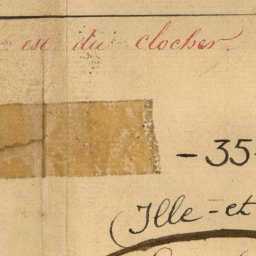 est du clocher.
- 35 -
(Ille-et